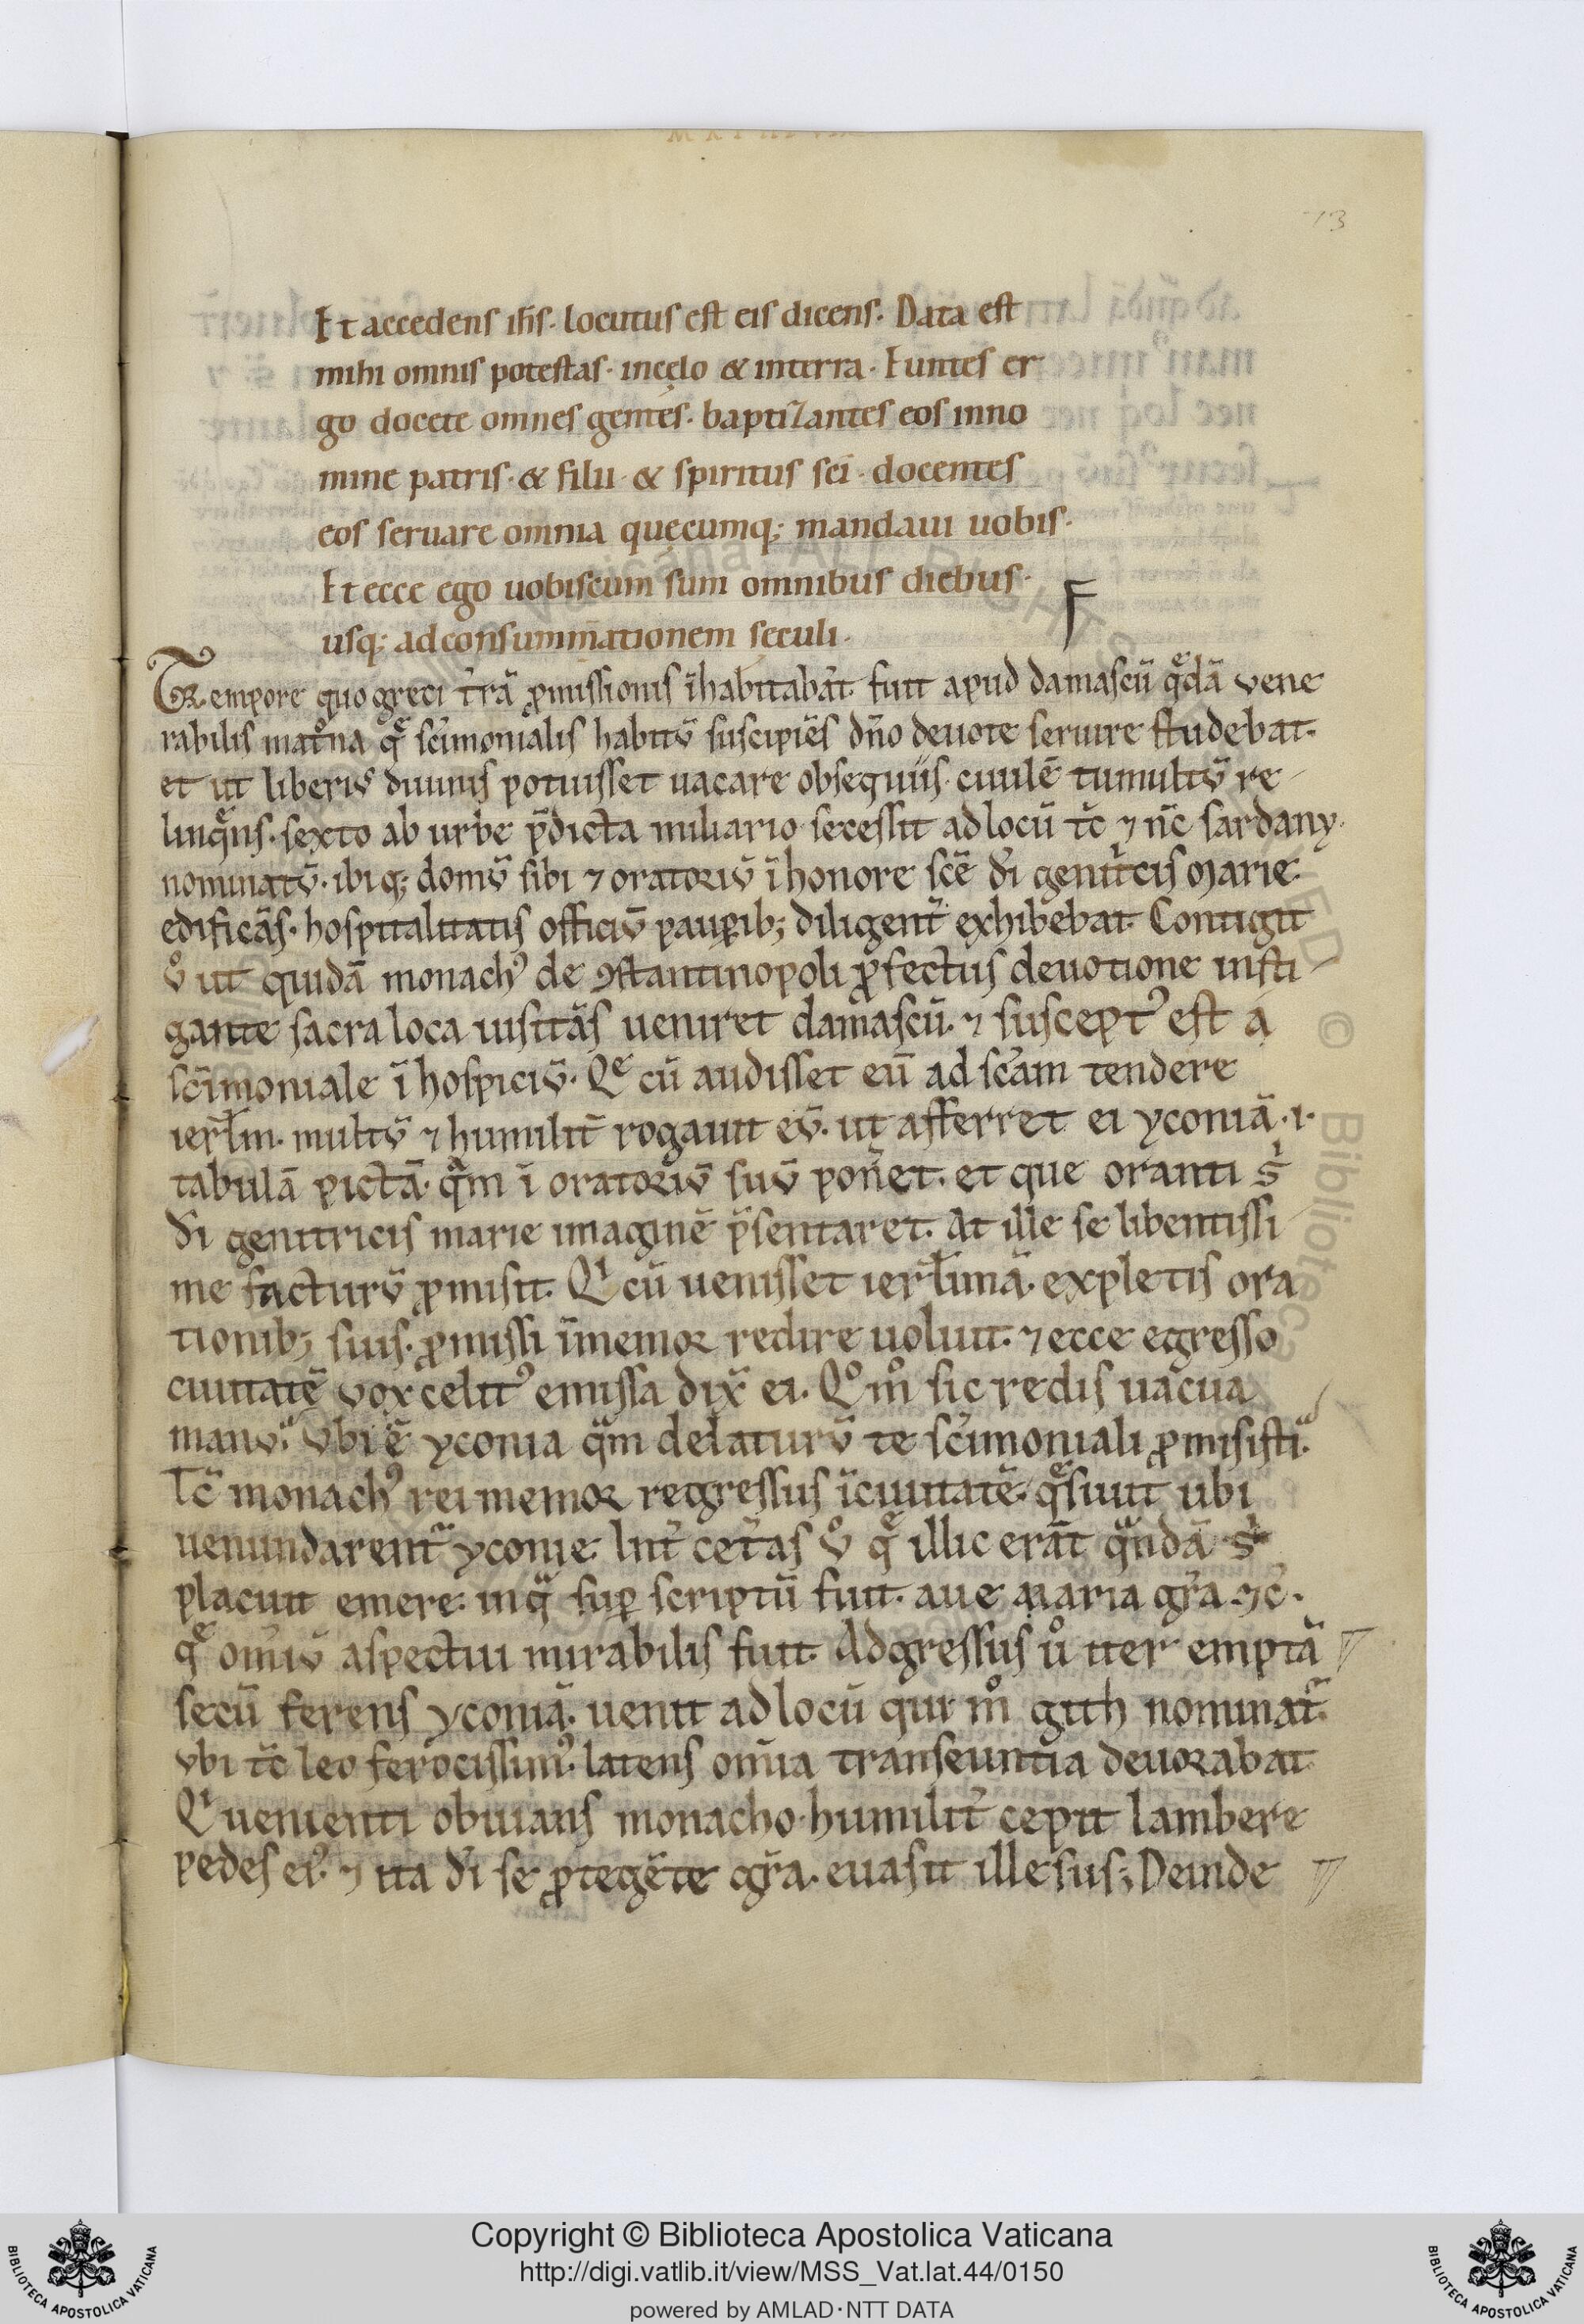 73
Et accedens ihs̄. locutus est eis dicens. Data est
mihi omnis potestas. incęlo & interra. Euntes er
go docete omnes gentes. baptizantes eos inno
mine patris. & filii. & spiritus sc̄i. docentes
eos seruare omnia quęcumq; mandaui uobis.
Et ecce ego uobiscum sum omnibus diebus.
usq; adconsummationem sęculi.
Tempore quo greci t̄rā ꝓmissionis īhabitabāt. fuit apud damascū qͤdā vene
rabilis matͦna qͤ sc̄imonialis habitū suscipiēs dn̄o deuote seruire studebat.
et ut liberiꝰ diuinis potuisset uacare obsequiis. ciuilē tumultū re
linqͤns. sexto ab urbe p̄dicta miliario secessit ad locū tc̄ ⁊ nc̄ sardany.
nominatū. ibiq; domū sibi ⁊ oratoriū ī honore scē dī genitͥcis marie
edificās. hospitalitatis officiū pauꝑib; diligent̄ exhibebat. Contigit
vͦ ut quidā monachꝰ de ꝯstantinopoli ꝓfectus deuotione insti
gante sacra loca uisitās ueniret damascū. ⁊ susceptꝰ est a
sc̄imoniale ī hospiciū. Qͤ cū audisset eū ad sc̄am tendere
ierl̄m. multū ⁊ humilit̄ rogauit eū. ut afferret ei yconiā .i.
tabulā pictā. qͣm ī oratoriū suū pon̄et. et que oranti sͥ
dī genitricis marie imaginē p̄sentaret. At ille se libentissi
me facturū ꝓmisit. Qͥ cū uenisset ierl̄imā. expletis ora
tionib; suis. ꝓmissi īmemor redire uoluit. ⁊ ecce egresso
ciuitatē vox celitꝰ emissa dix̄ ei. Qͦmͦ sic redis uacua
manu. Vbi ē yconia qͣm delaturū te sc̄imoniali ꝓmisisti.
Tc̄ monachꝰ rei memor regressus ī ciuitatē. qͤsiuit ubi
uenundarent᷑ yconie. Int̄ cet̄as vͦ qͤ illic erāt qͣndā sͥ
placuit emere. in qͣ suꝑ scriptū fuit. aue maria gr̄a ⁊c̄.
qͤ om̄iū aspectui mirabilis fuit. Adgressus uͦ iter emptā
secū ferens yconiā. uenit ad locū qui mͦ gith nominat᷑.
vbi tc̄ leo ferocissimꝰ. latens om̄ia transeuntia deuorabat.
Qͥ uenienti obuians monacho. humilit̄ cepit lambere
pedes eiꝰ. ⁊ ita dī se ꝓtegēte gr̄a. euasit illesus; Deinde
Copyright © Biblioteca Apostolica Vaticana
http://digi.vatlib.it/view/MSS_Vat.lat.44/0150
powered by AMLAD·NTT DATA
BIBLIOTECA APOSTOLICA VATICANA
BIBLIOTECA APOSTOLICA VATICANA